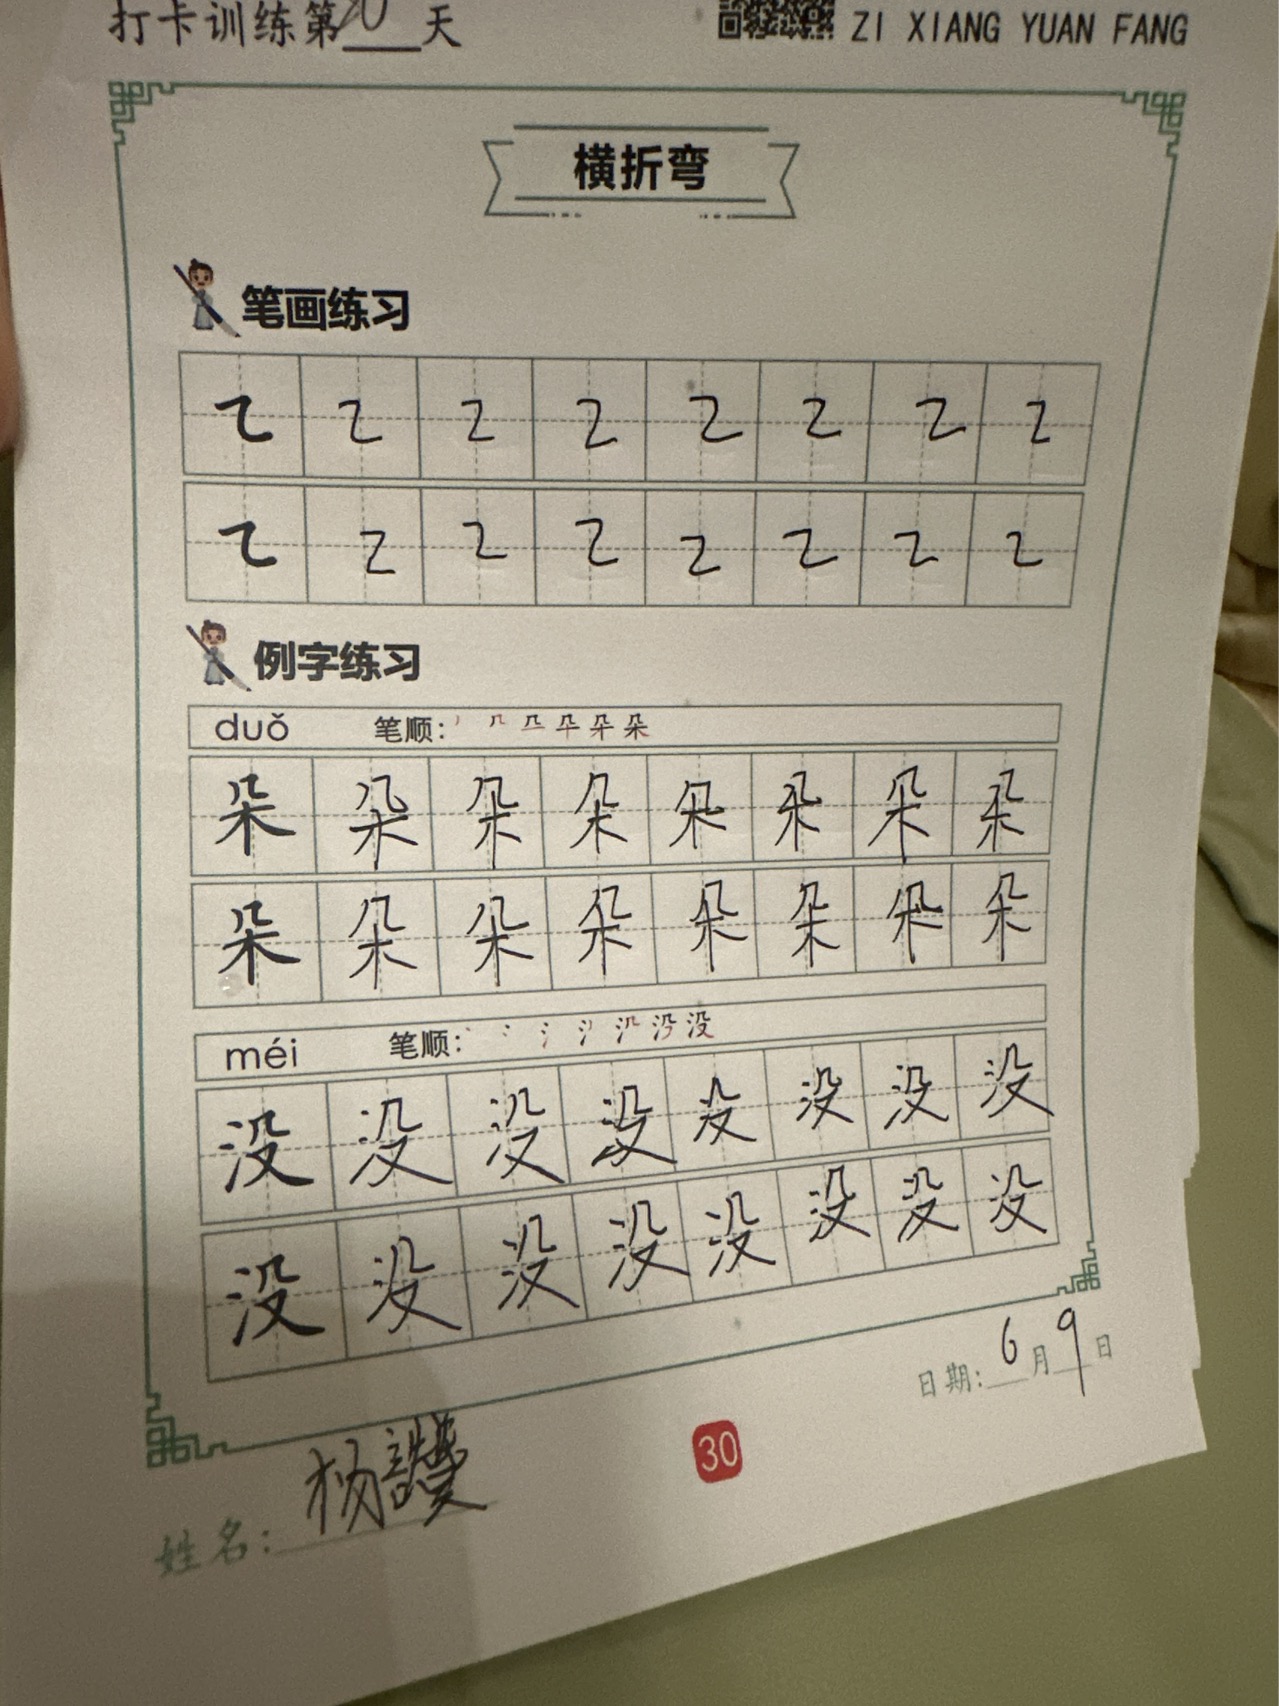 打卡训练第20天
ZI XIANG YUAN FANG
横折弯
笔画练习
例字练习
duǒ 笔顺:
朵 朵 朵 朵 朵 朵 朵 朵
朵 朵 朵 朵 朵 朵 朵 朵
méi 笔顺:
没 没 没 没 没 没 没 没
没 没 没 没 没 没 没 没
日期: 6月9日
30
姓名: 杨